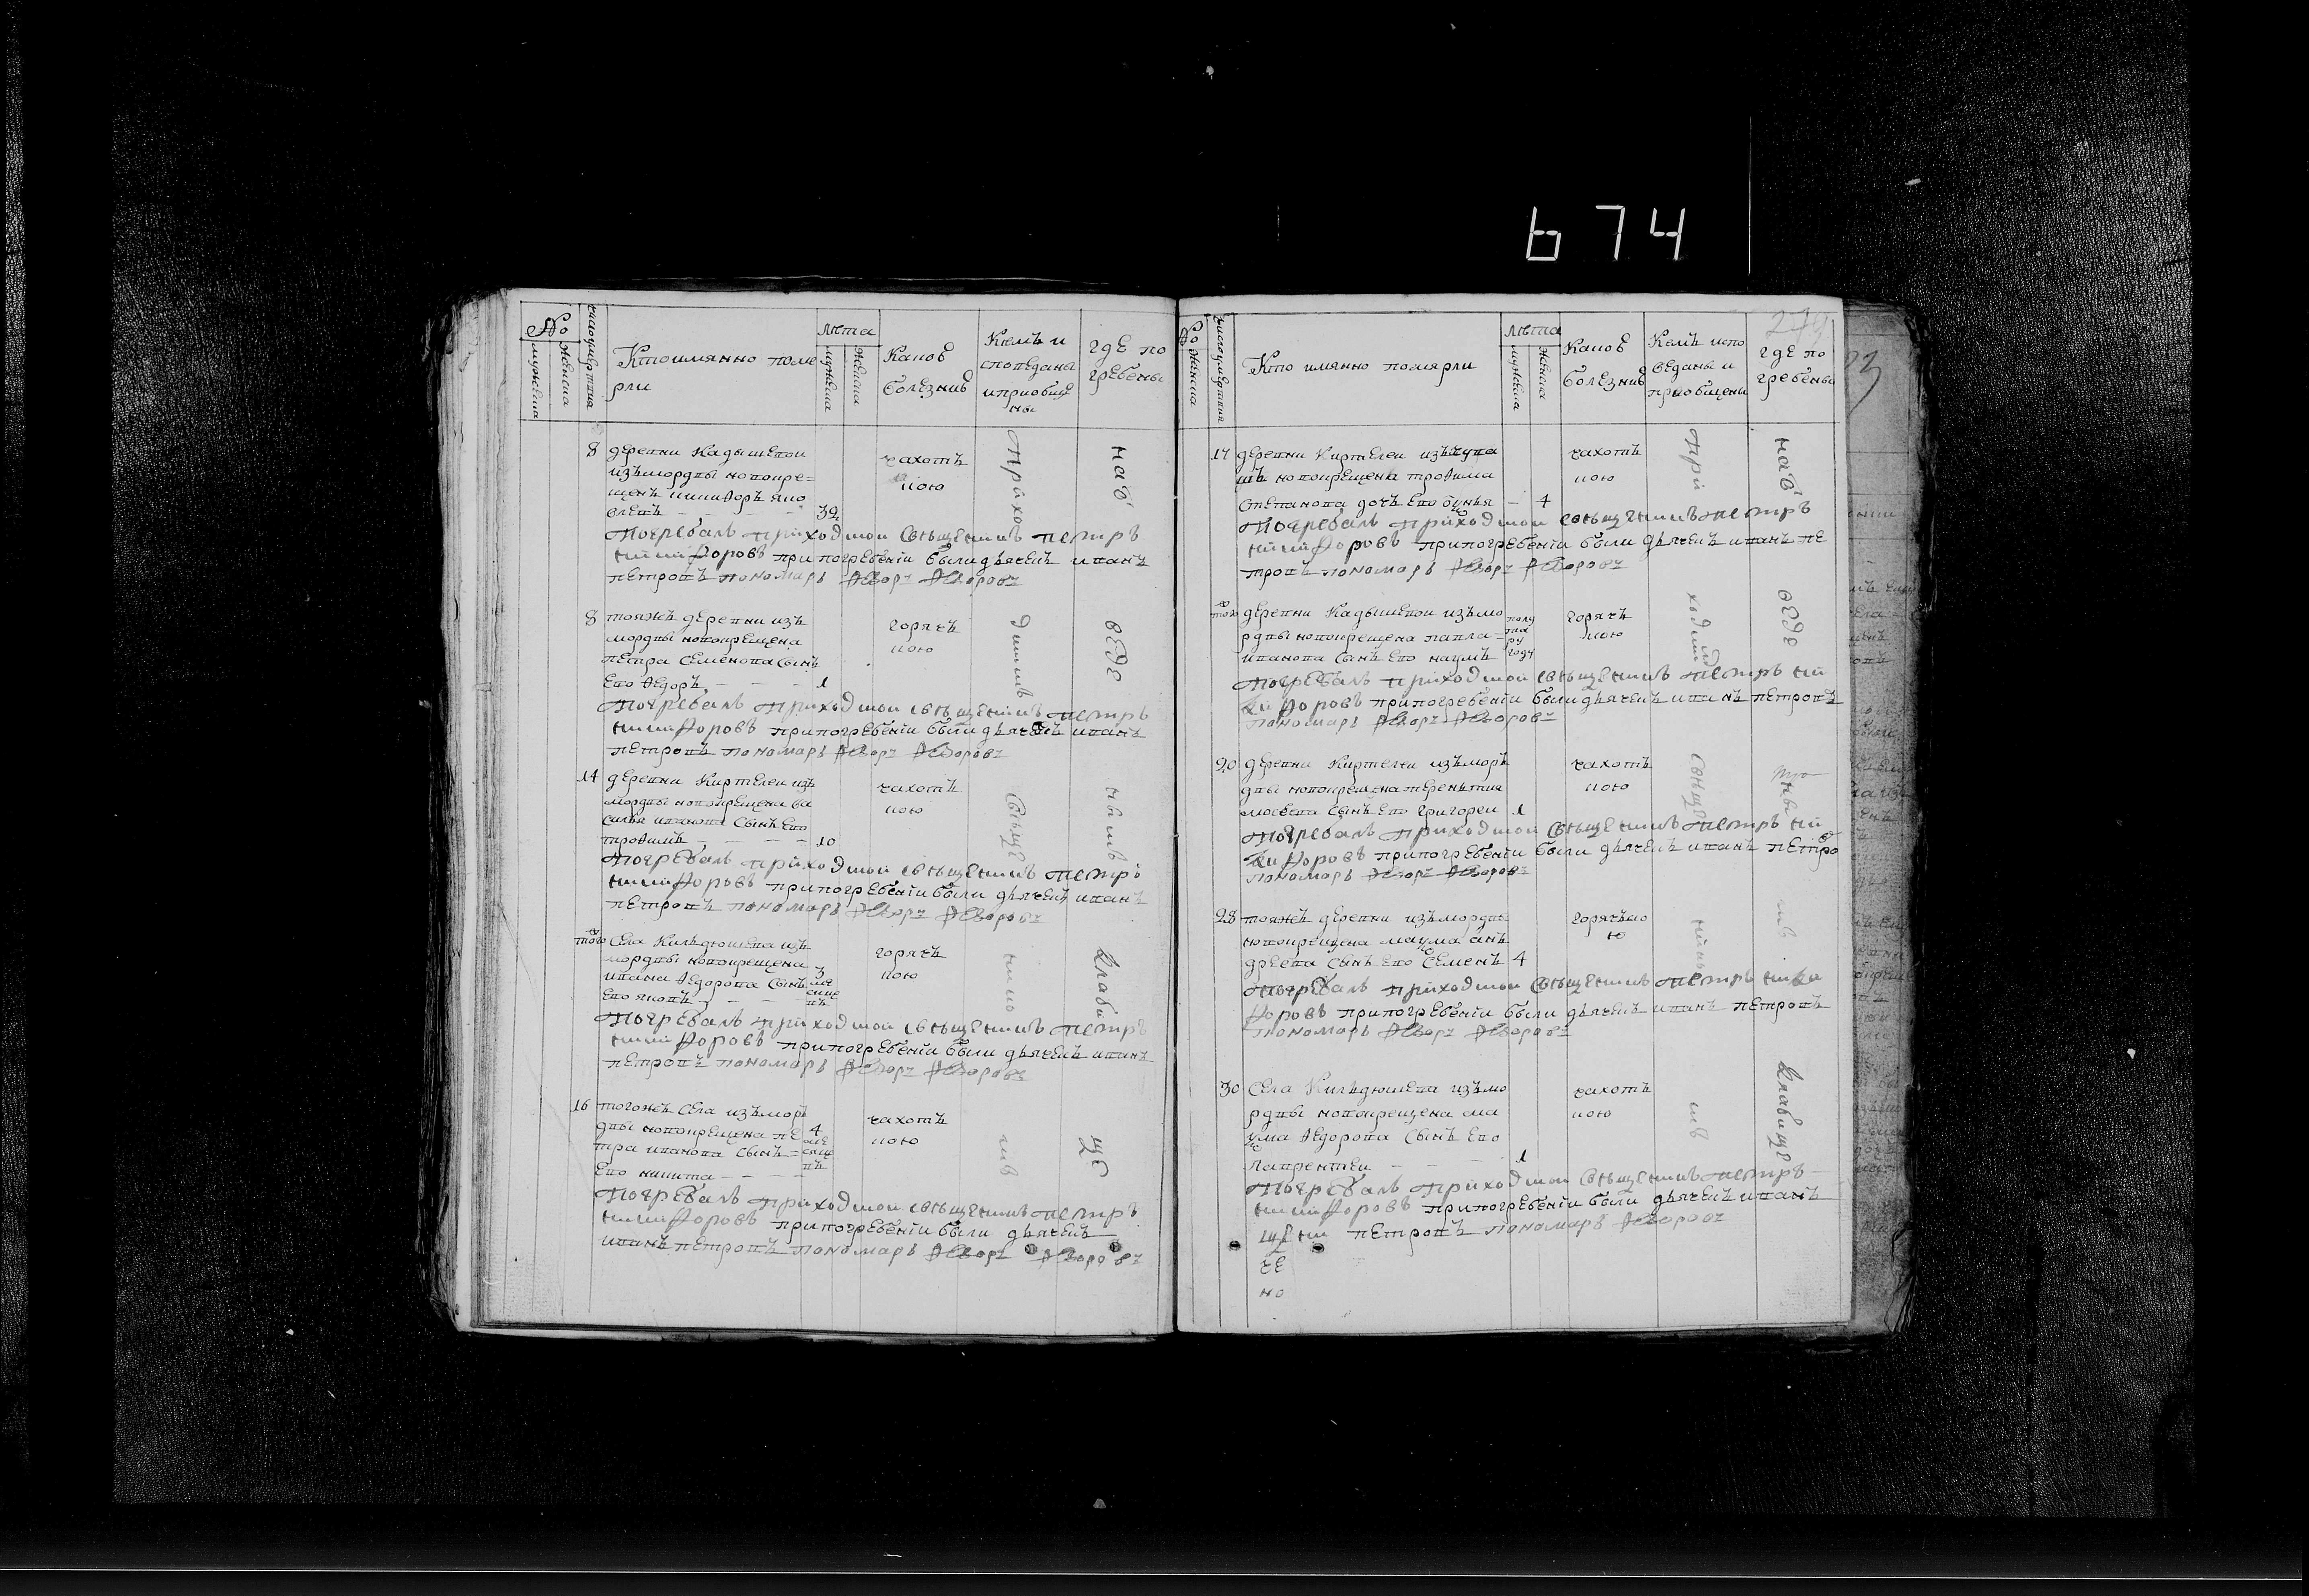 674
№
мужеска
женска
число умертвия
Кто имянно поме
рли
лѣта
мужеска
женска
Какою
болезнию
Кемъ и
споведаны
и приобще
ны
где по
гребены
8 деревни Кадышевои
изъ мордвы новокре=
щенъ никифоръ яко
влевъ 32
чахот
кою
Погребалъ приходской священникъ петръ
никифоровъ при погребении были дьячекъ иванъ
петровъ пономарь Федоръ Федоровъ
8 тояжъ деревни изъ
мордвы новокрещена
петра семенова сынъ
ево федоръ 1
горяч
кою
Погребалъ приходской священникъ петръ
никифоровъ при погребении были дьячекъ иванъ
петровъ пономарь Федоръ Федоровъ
14 деревни Киртелеи изъ
мордвы новокрещена ва
силья иванова сынъ ево
трофимъ 10
чахот
кою
Погребалъ приходской священникъ петръ
никифоровъ при погребении были дьячекъ иванъ
петровъ пономарь Федоръ Федоровъ
того села Кильдюшева изъ
мордвы новокрещена
ивана федорова сынъ
ево яковъ
3 ме
сяце
въ
горяч
кою
Погребалъ приходской священникъ петръ
никифоровъ при погребении были дьячекъ иванъ
петровъ пономарь Федоръ Федоровъ
16 тогожъ села изъ мор
двы новокрещена пе
тра иванова сынъ
ево никита
4 ме
сяце
въ
чахот
кою
Погребалъ приходской священникъ петръ
никифоровъ при погребении были дьячекъ
иванъ петровъ пономарь Федоръ Федоровъ
Приход
скимъ
свяще
нно
ни
на о
веде
нномъ
кладби
ще
279
№
женска
число умертвия
Кто имянно померли
лѣта
мужеска
женска
Какою
болезнию
Кемъ испо
веданы и
приобщены
где по
гребены
17 деревни Киртелеи изъ чува
шъ новокрещена трофима
степанова дочь ево 4
чахот
кою
Погребалъ приходской священникъ петръ
никифоровъ при погребении были дьячекъ иванъ пе
тровъ пономарь Федоръ Федоровъ
того деревни Кадышевои изъ мо
рдвы новокрещена павла
иванова сынъ ево наумъ
полу
та
ру
году
горяч
кою
Погребалъ приходской священникъ петръ ни
кифоровъ при погребении были дьячекъ иванъ петровъ
пономарь Федоръ Федоровъ
20 деревни Киртелеи изъ мор
двы новокрещена терентия
мосеева сынъ ево григореи 1
чахот
кою
Погребалъ приходской священникъ петръ ни
кифоровъ при погребении были дьячекъ иванъ петро
пономарь Федоръ Федоровъ
28 тояжъ деревни изъ мордвы
новокрещена наума ан
дреева сынъ ево семенъ 4
горячко
ю
Погребалъ приходской священникъ петръ ники
форовъ при погребении были дьячекъ иванъ петровъ
пономарь Федоръ Федоровъ
30 села Кильдюшева изъ мо
рдвы новокрещена на
ума федорова сынъ ево
лаврентеи 1
чахот
кою
Погребалъ приходской священникъ петръ
никифоровъ при погребении были дьячекъ иванъ
петровъ пономарь Федоровъ
че
но
При
ходским
свяще
нни
на о
веде
кладбище